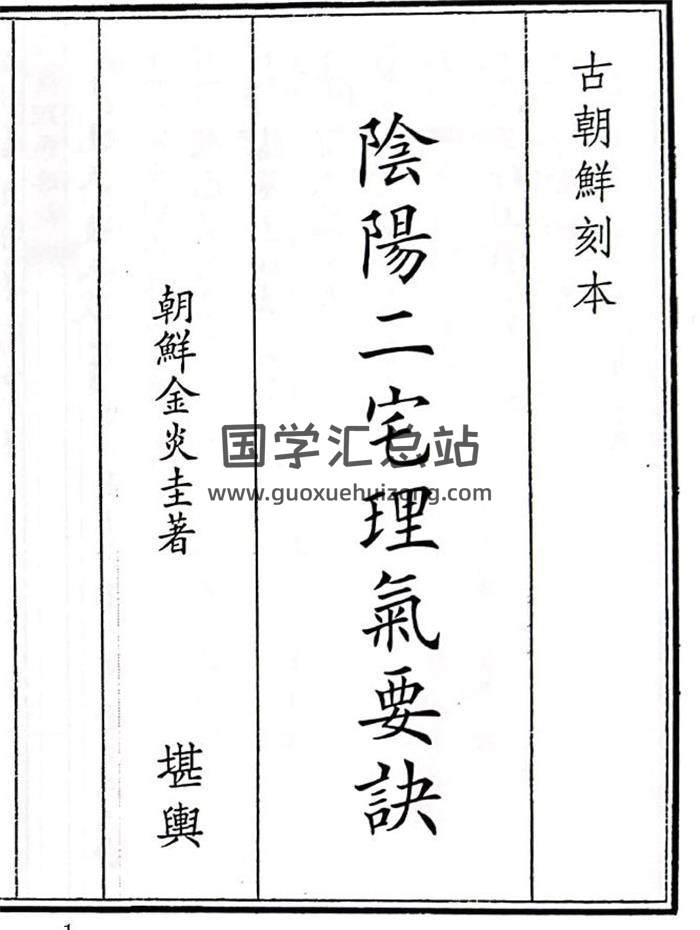 古朝鮮刻本
陰陽二宅理氣要訣
朝鮮金炎圭著
堪輿
国学汇总站
www.guoxuehuizong.com
1